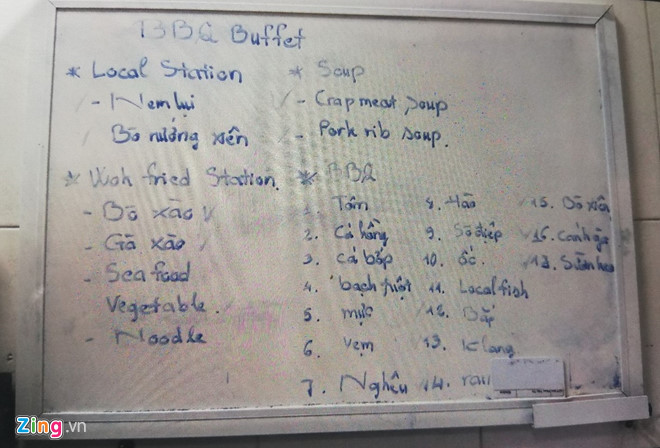 BBQ Buffet
* Local Station
- Nem lụi
Bò nướng xiên
* Wok fried Station.
- Bò xào
- Gà xào
- Sea food
Vegetable.
- Noodle
* Soup
- Crap meat soup
- Pork rib soup.
* BBQ
1. Tôm
2. Cá hồng
3. cá bớp
4. bạch tuột
5. mực
6. Vẹm
7. Nghêu
8. Hào
9. Sò điệp
10. ốc.
11. Local fish
12. Bắp
13. K lang
14. rau
15. Bò xiên
16. Cánh gà
17. Sườn heo
Zing.vn